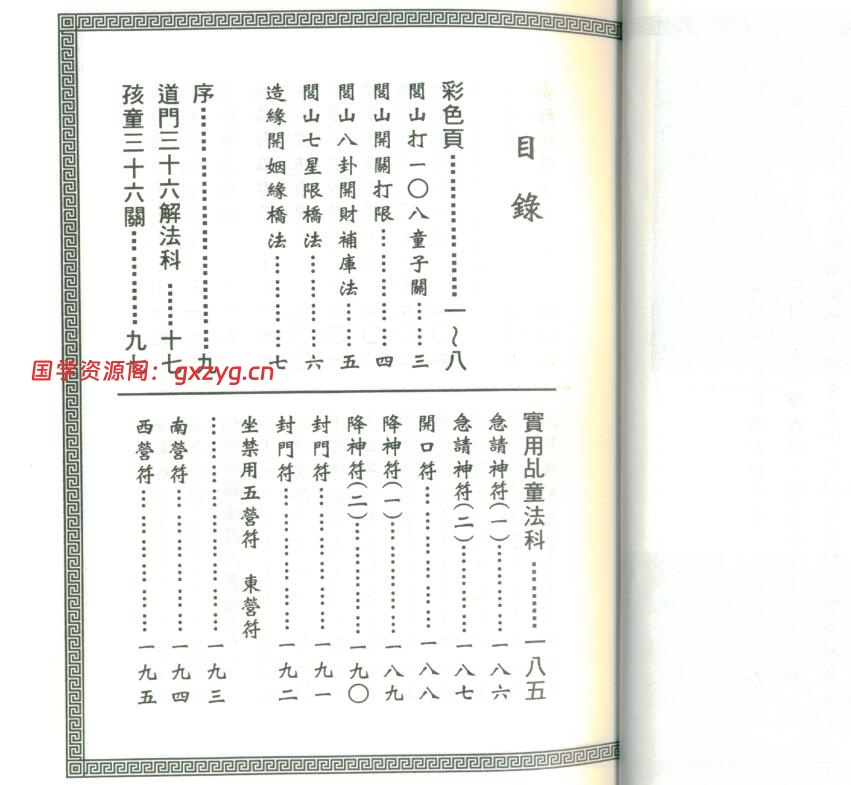 目錄
彩色頁……………………一～八
閭山打一〇八童子關……三
閭山開關打限……………四
閭山八卦開財補庫法……五
閭山七星限橋法…………六
造緣開姻緣橋法…………七
序…………………………九
道門三十六解法科……十七
孩童三十六關……………九七
實用乩童法科……………一八五
急請神符(一)……………一八六
急請神符(二)……………一八七
開口符……………………一八八
降神符(一)………………一八九
降神符(二)………………一九〇
封門符……………………一九一
封門符……………………一九二
坐禁用五營符 東營符
……………………………一九三
南營符……………………一九四
西營符……………………一九五
国学资源阁：gxzyg.cn